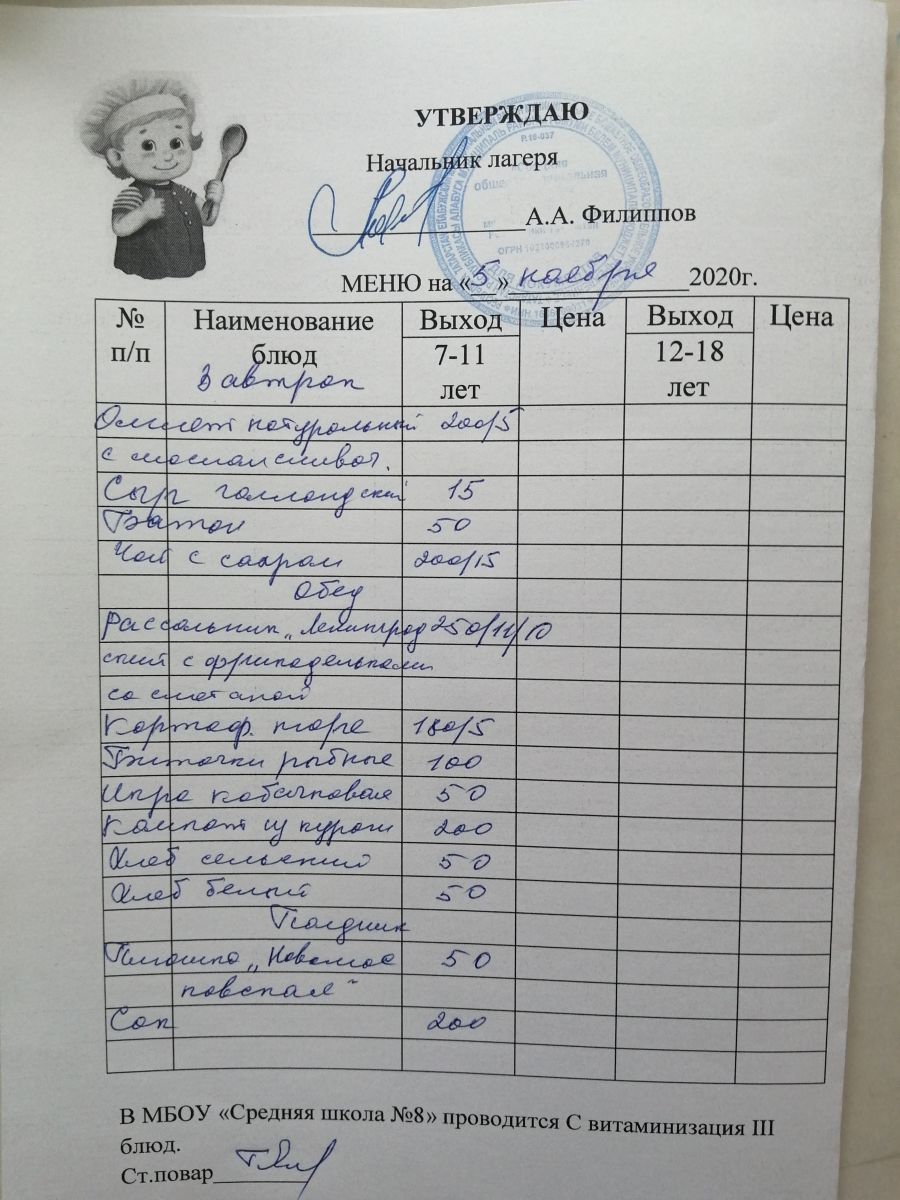 УТВЕРЖДАЮ
Начальник лагеря
А.А. Филиппов
МЕНЮ на «5» ноября 2020г.
№ п/п Наименование блюд Выход 7-11 лет Цена Выход 12-18 лет Цена
Завтрак
Омлет натуральный 200/5
с маслом сливоч.
Сыр голландский 15
Батон 50
Чай с сахаром 200/15
Обед
Рассольник „Ленинград 250/11/10
ский с фрикадельками
со сметаной
Картоф. пюре 180/5
Биточки рыбные 100
Икра кабачковая 50
Компот из кураги 200
Хлеб сельский 50
Хлеб белый 50
Полдник
Плюшка „Новомос 50
ковская"
Сок 200
В МБОУ «Средняя школа №8» проводится С витаминизация III
блюд.
Ст.повар